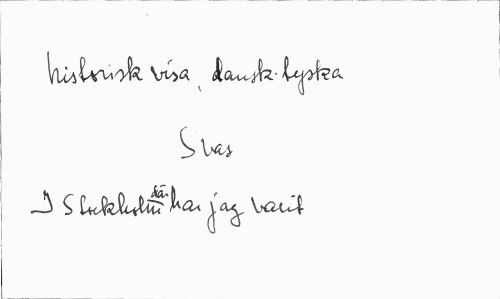 historisk visa, dansk-tyska
Svas
I Stockholm där har jag varit